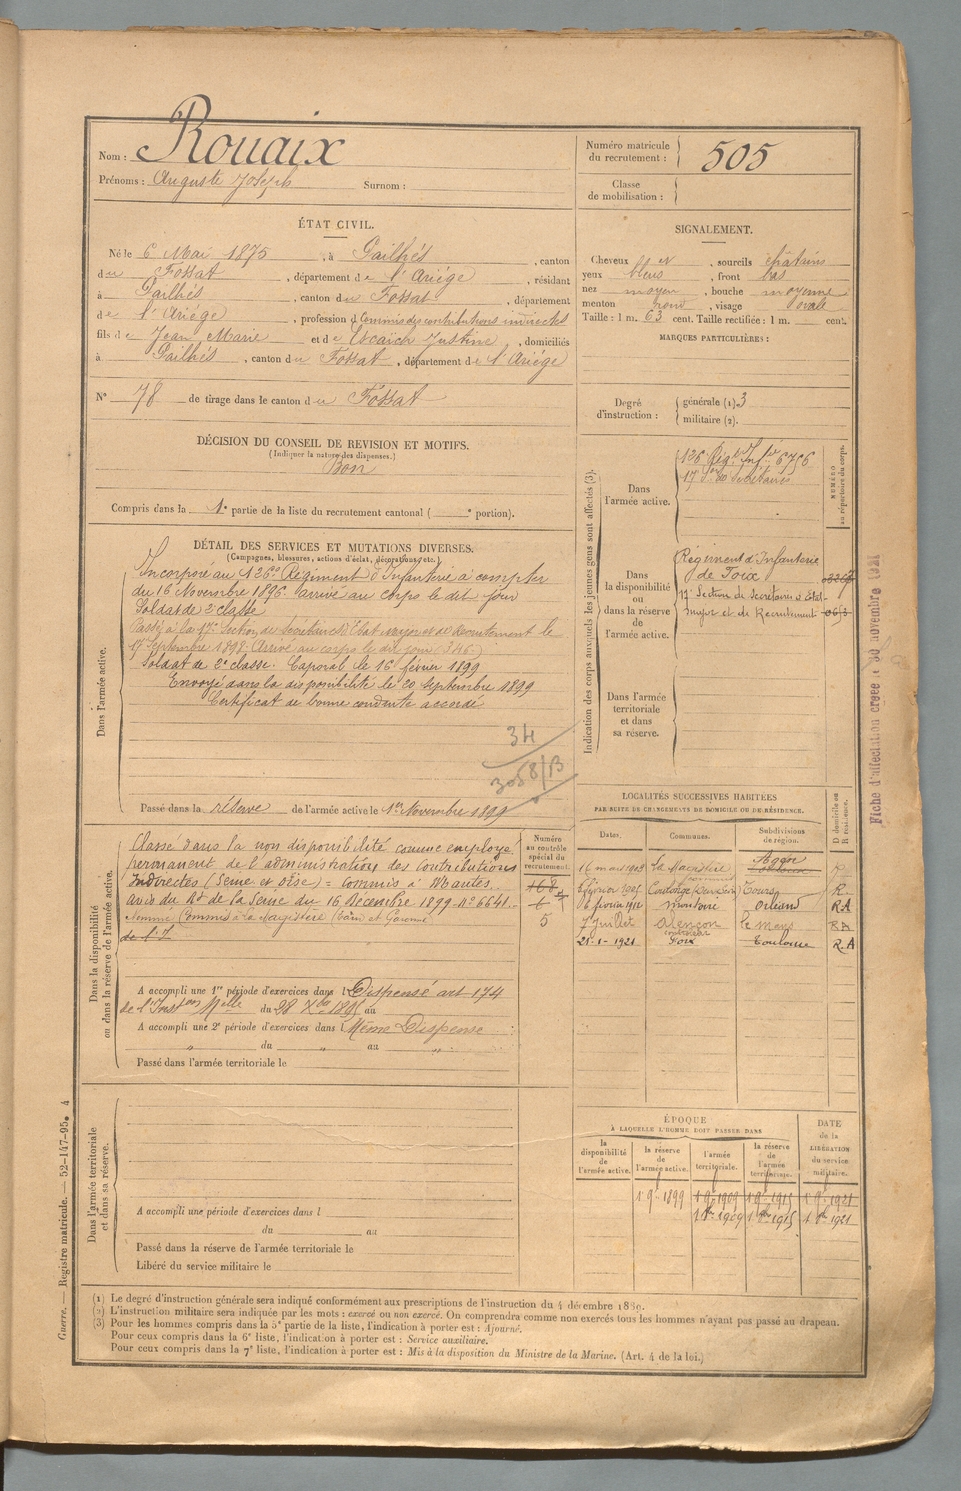 Nom : Rouaix
Prénoms : Auguste Joseph Surnom :
Numéro matricule du recrutement : 505
Classe de mobilisation :
ÉTAT CIVIL.
Né le 6 Mai 1875, à Pailhés, canton
du Fossat, département de l'Ariége, résidant
à Pailhés, canton du Fossat, département
de l'Ariége, profession d Commis des contributions indirectes
fils de Jean Marie et de Escaich Justine, domiciliés
à Pailhés, canton du Fossat, département de l'Ariége
N° 78 de tirage dans le canton du Fossat
SIGNALEMENT.
Cheveux et, sourcils châtains
yeux bleus, front bas
nez moyen, bouche moyenne
menton rond, visage ovale
Taille : 1 m. 63 cent. Taille rectifiée : 1 m. cent.
MARQUES PARTICULIÈRES :
Degré d'instruction : générale (1) 3
militaire (2).
DÉCISION DU CONSEIL DE REVISION ET MOTIFS.
(Indiquer la nature des dispenses.)
Bon
Compris dans la 1e partie de la liste du recrutement cantonal ( e portion).
DÉTAIL DES SERVICES ET MUTATIONS DIVERSES.
(Campagnes, blessures, actions d'éclat, décorations, etc.)
Dans l'armée active.
Incorporé au 126e Régiment d'Infanterie à compter
du 16 Novembre 1896. arrivé au corps le dit jour
Soldat de 2e classe
Passé à la 17e Section de Secrétaires d'Etat Major et de Recrutement le
17 Septembre 1898. Arrivé au corps le dit jour (346.)
Soldat de 2e classe. Caporal le 16 février 1899
Envoyé dans la disponibilité le 20 Septembre 1899
Certificat de bonne conduite accordé
34
3058/B
Passé dans la réserve de l'armée active le 1er Novembre 1899
Indication des corps auxquels les jeunes gens sont affectés (3).
NUMÉRO au répertoire du corps.
Dans l'armée active.
126e Rég. Inf. 6756
17e Son de Secrétaires
Dans la disponibilité ou dans la réserve de l'armée active.
Régiment d'Infanterie
de Foix
17e Section de Secrétaires d'Etat-
major et de Recrutement
Dans l'armée territoriale et dans sa réserve.
Fiche d'affectation créée le 30 novembre 1921
Dans la disponibilité ou dans la réserve de l'armée active.
Classé dans la non disponibilité comme employé
permanent de l'administration des Contributions
Indirectes (Seine et Oise) = Commis à Mantes
avis du Rt de la Seine du 16 Décembre 1899 - No 6641.-
Nommé Commis à la Magistère (Tarn et Garonne)
Numéro au contrôle spécial du recrutement.
168
6
5
A accompli une 1re période d'exercices dans l Dispensé art 174
de l'Inst on Melle du 28 Xbre 1895 au
A accompli une 2e période d'exercices dans l Même Dispense
" du " au "
Passé dans l'armée territoriale le
LOCALITÉS SUCCESSIVES HABITÉES
PAR SUITE DE CHANGEMENTS DE DOMICILE OU DE RÉSIDENCE.
Dates. Communes. Subdivisions de région. D domicile ou R résidence.
16 mai 1903 La Magistère Agen R
février 1905 Tours R
6 février 1912 Montoire Orléans RA
7 juillet Alençon le Mans RA
21-1-1921 Foix Toulouse R.A
ÉPOQUE
À LAQUELLE L'HOMME DOIT PASSER DANS
la disponibilité de l'armée active. la réserve de l'armée active. l'armée territoriale. la réserve de l'armée territoriale. DATE de la LIBÉRATION du service militaire.
1 9e 1899 1 9e 1909 1 9e 1915 1 9e 1921
1 9bre 1909 1 9bre 1915 1 9bre 1921
Dans l'armée territoriale et dans sa réserve.
A accompli une période d'exercices dans l
du au
Passé dans la réserve de l'armée territoriale le
Libéré du service militaire le
(1) Le degré d'instruction générale sera indiqué conformément aux prescriptions de l'instruction du 4 décembre 1889.
(2) L'instruction militaire sera indiquée par les mots : exercé ou non exercé. On comprendra comme non exercés tous les hommes n'ayant pas passé au drapeau.
(3) Pour les hommes compris dans la 5e partie de la liste, l'indication à porter est : Ajourné.
Pour ceux compris dans la 6e liste, l'indication à porter est : Service auxiliaire.
Pour ceux compris dans la 7e liste, l'indication à porter est : Mis à la disposition du Ministre de la Marine. (Art. 4 de la loi.)
Guerre. — Registre matricule. — 52-147-95. 4